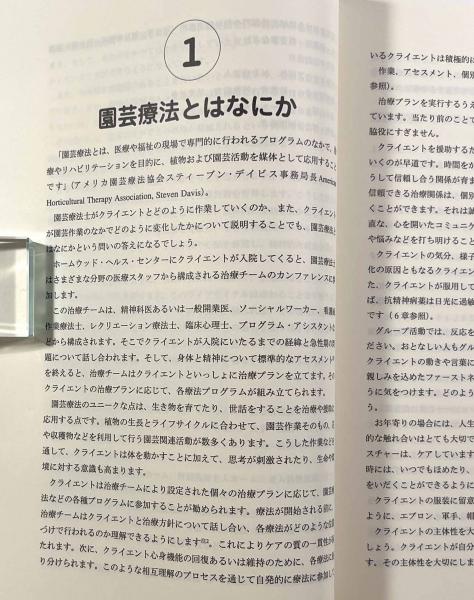 1
園芸療法とはなにか
「園芸療法とは、医療や福祉の現場で専門的に行われるプログラムのなかで、
療やリハビリテーションを目的に、植物および園芸活動を媒体として応用すること
です」(アメリカ園芸療法協会スティーブン・デイビス事務局長American
Horticultural Therapy Association, Steven Davis)。
園芸療法士がクライエントとどのように作業していくのか、また、クライエント
が園芸作業のなかでどのように変化したかについて説明することでも、園芸療法と
はなにかという問いの答えになるでしょう。
ホームウッド・ヘルス・センターにクライエントが入院してくると、園芸療法
はさまざまな分野の医療スタッフから構成される治療チームのカンファレンスに参
加します。
この治療チームは、精神科医あるいは一般開業医、ソーシャルワーカー、看護師
作業療法士、レクリエーション療法士、臨床心理士、プログラム・アシスタント
どから構成されます。そこでクライエントが入院にいたるまでの経緯と急性期の
題について話し合われます。そして、身体と精神について標準的なアセスメント
を終えると、治療チームはクライエントといっしょに治療プランを立てます。その
クライエントの治療プランに応じて、各療法プログラムが組み立てられます。
園芸療法のユニークな点は、生き物を育てたり、世話をすることを治療や援助に
応用する点です。植物の生長とライフサイクルに合わせて、園芸作業そのもの、
や収穫物などを利用して行う園芸関連活動が数多くあります。こうした作業などを
通して、クライエントは体を動かすことに加えて、思考が刺激されたり、生命や
境に対する意識も高まります。
クライエントは治療チームにより設定された個々の治療プランに応じて、園芸
法などの各種プログラムに参加することが勧められます。療法が開始される前に、
治療チームはクライエントと治療方針について話し合い、各療法がどのような位置
づけで行われるのか理解できるようにします。これによりケアの質の一貫性が
たれます。次に、クライエント心身機能の回復あるいは維持のために、各療法に
り分けられます。このような相互理解のプロセスを通じて自発的に療法に参加して
いるクライエントは積極的に
作業、アセスメント、個別
参照)。
治療プランを実行するうえ
ています。当たり前のことで
脇役にすぎません。
クライエントを援助するた
いくのが早道です。時間をか
うして信頼し合う関係が育ま
信頼できる治療関係は、個別
くことができます。それは誠
直な、心を開いたコミュニケ
や悩みなどを打ち明けること
クライエントの気分、様子
化の原因ともなるクライエン
た、クライエントが服用して
ば、抗精神病薬は日光に過敏
です(6章参照)。
グループ活動では、反応を
ださい。おとなしい人もグル
クライエントの動きや言葉に
親しみを込めたファーストネ
うに気をつけます。どのよう
う。
お年寄りの場合には、人生
的な触れ合いはとても大切で
スチャーは、ケアしています
時には、いつでもほめたり、
をいだくことができるように
クライエントの服装に留意
ように、エプロン、軍手、帽
クライエントの主体性を大
しょう。クライエントが自分
す。その主体性を大切にしま